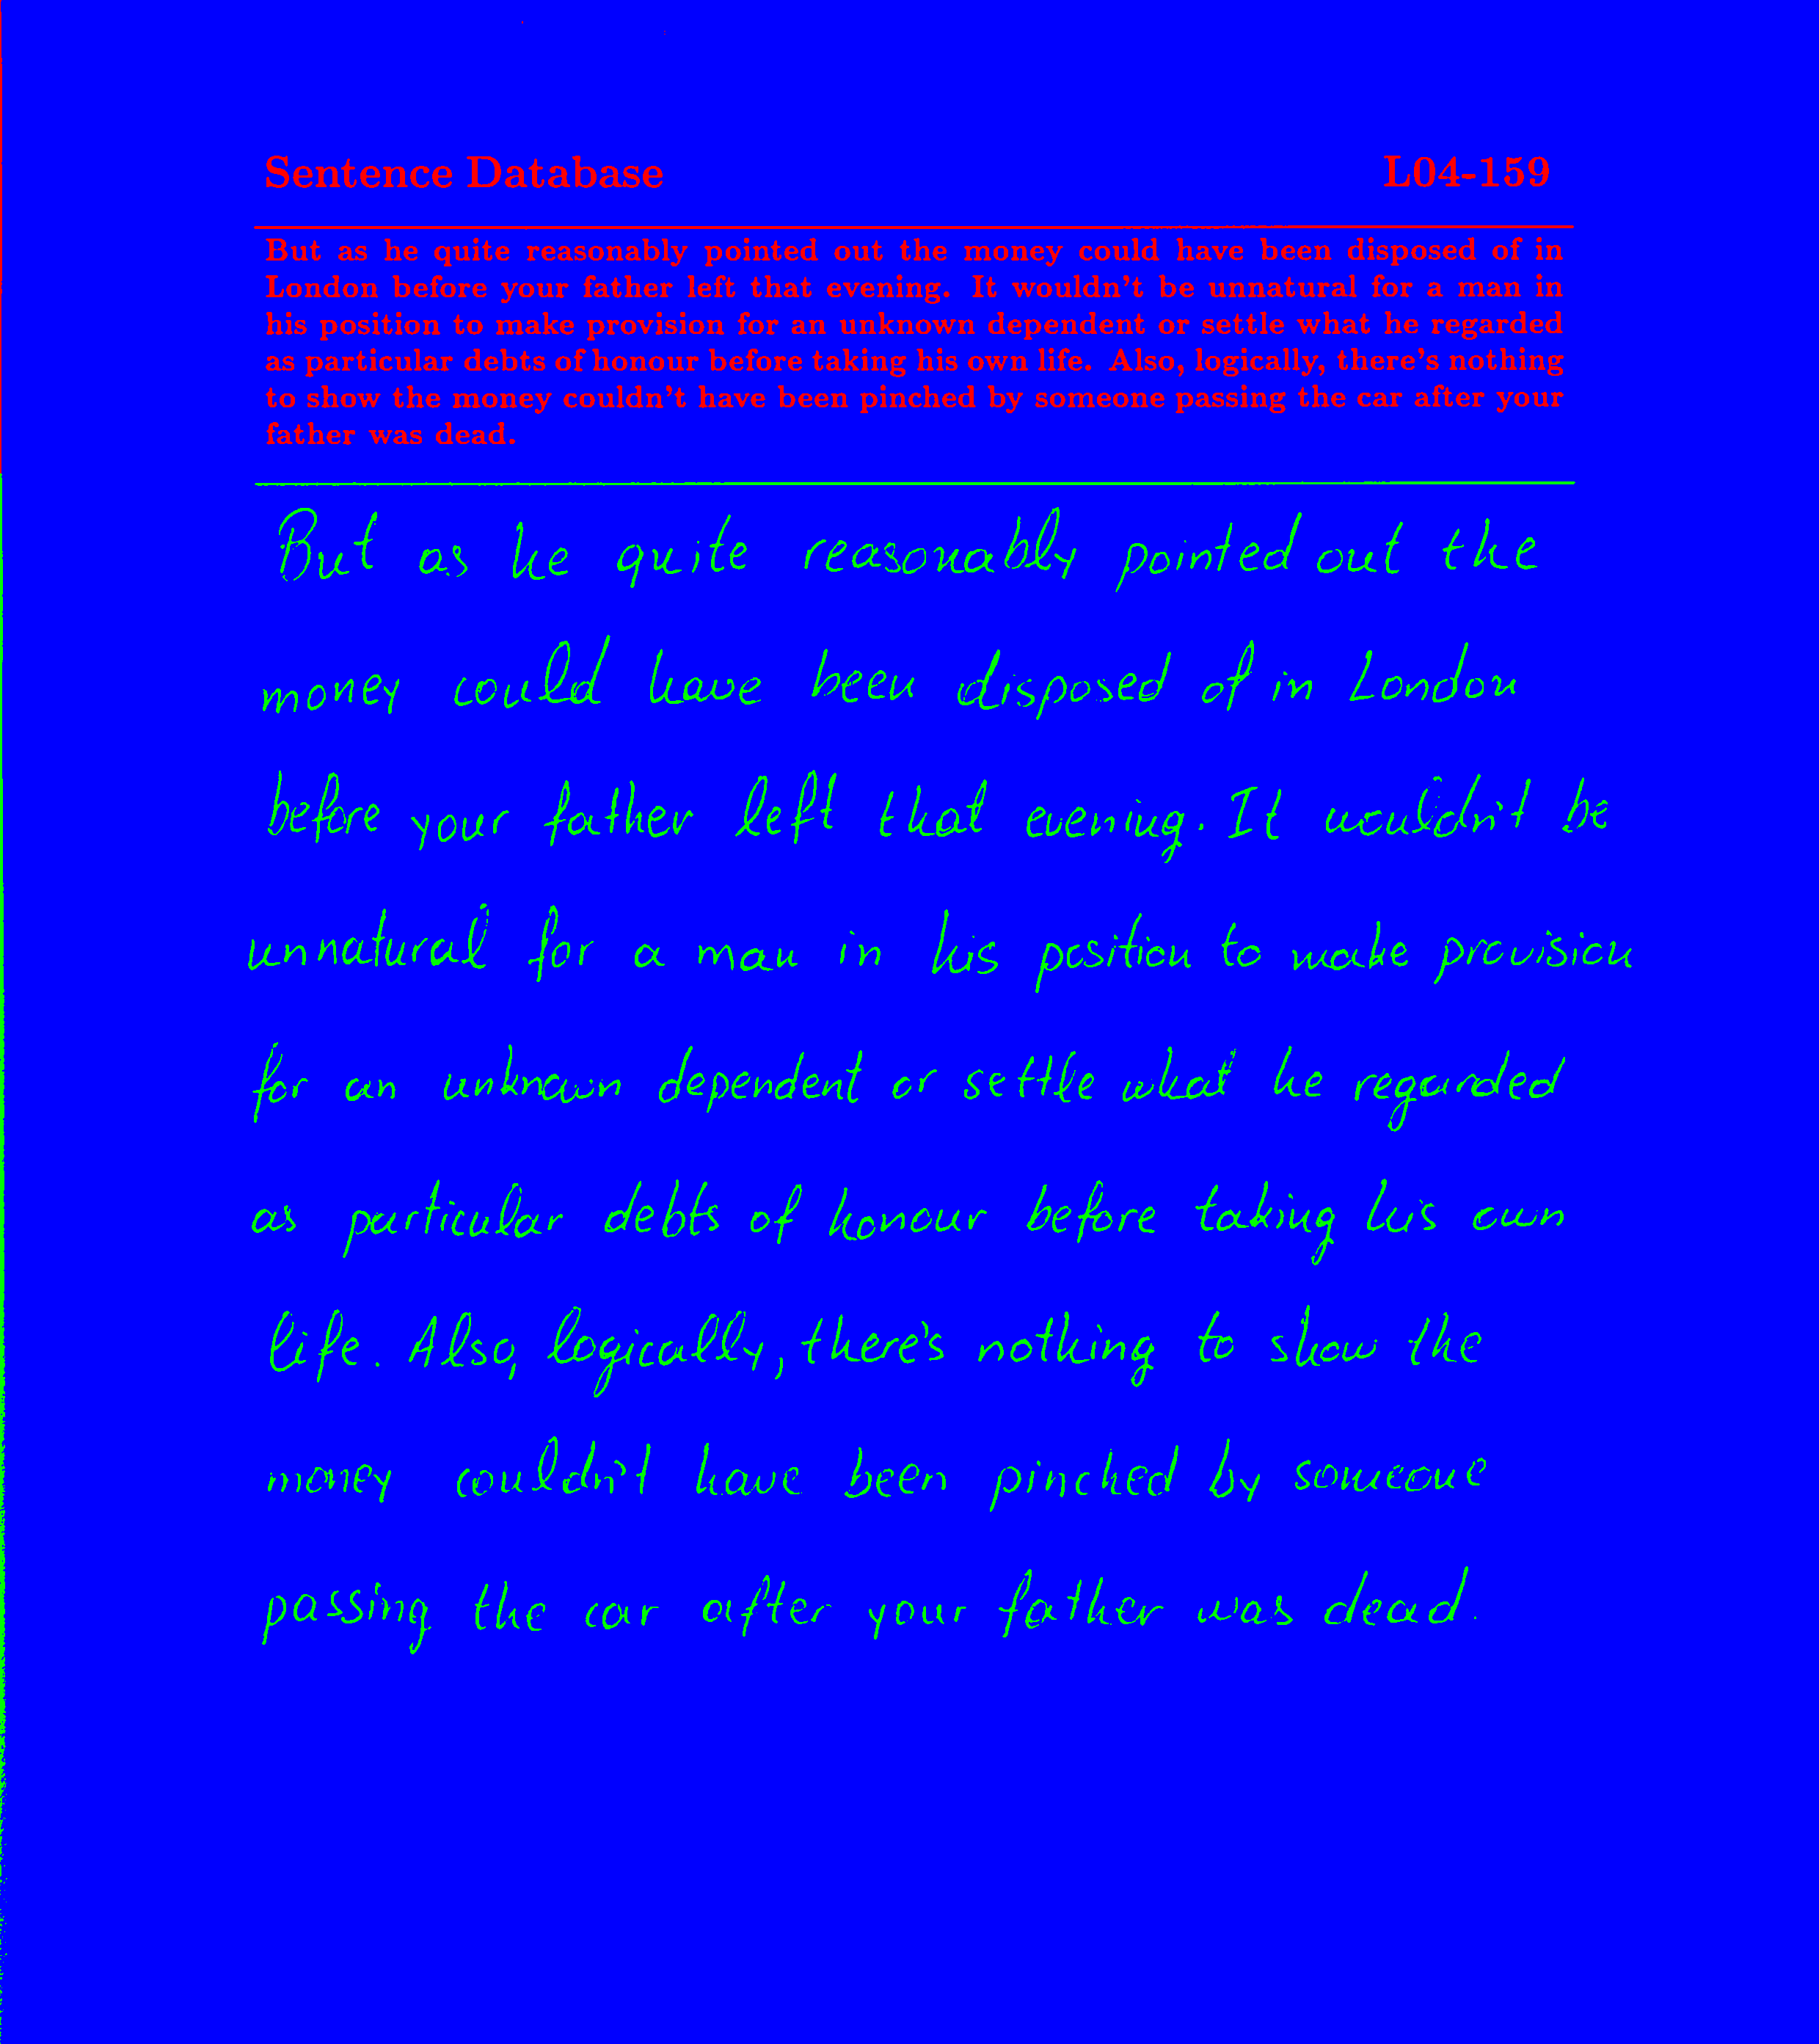 Sentence Database L04-159
But as he quite reasonably pointed out the money could have been disposed of in
London before your father left that evening. It wouldn't be unnatural for a man in
his position to make provision for an unknown dependent or settle what he regarded
as particular debts of honour before taking his own life. Also, logically, there's nothing
to show the money couldn't have been pinched by someone passing the car after your
father was dead.
But as he quite reasonably pointed out the
money could have been disposed of in London
before your father left that evening. It wouldn't be
unnatural for a man in his position to make provision
for an unknown dependent or settle what he regarded
as particular debts of honour before taking his own
life. Also, logically, there's nothing to show the
money couldn't have been pinched by someone
passing the car after your father was dead.